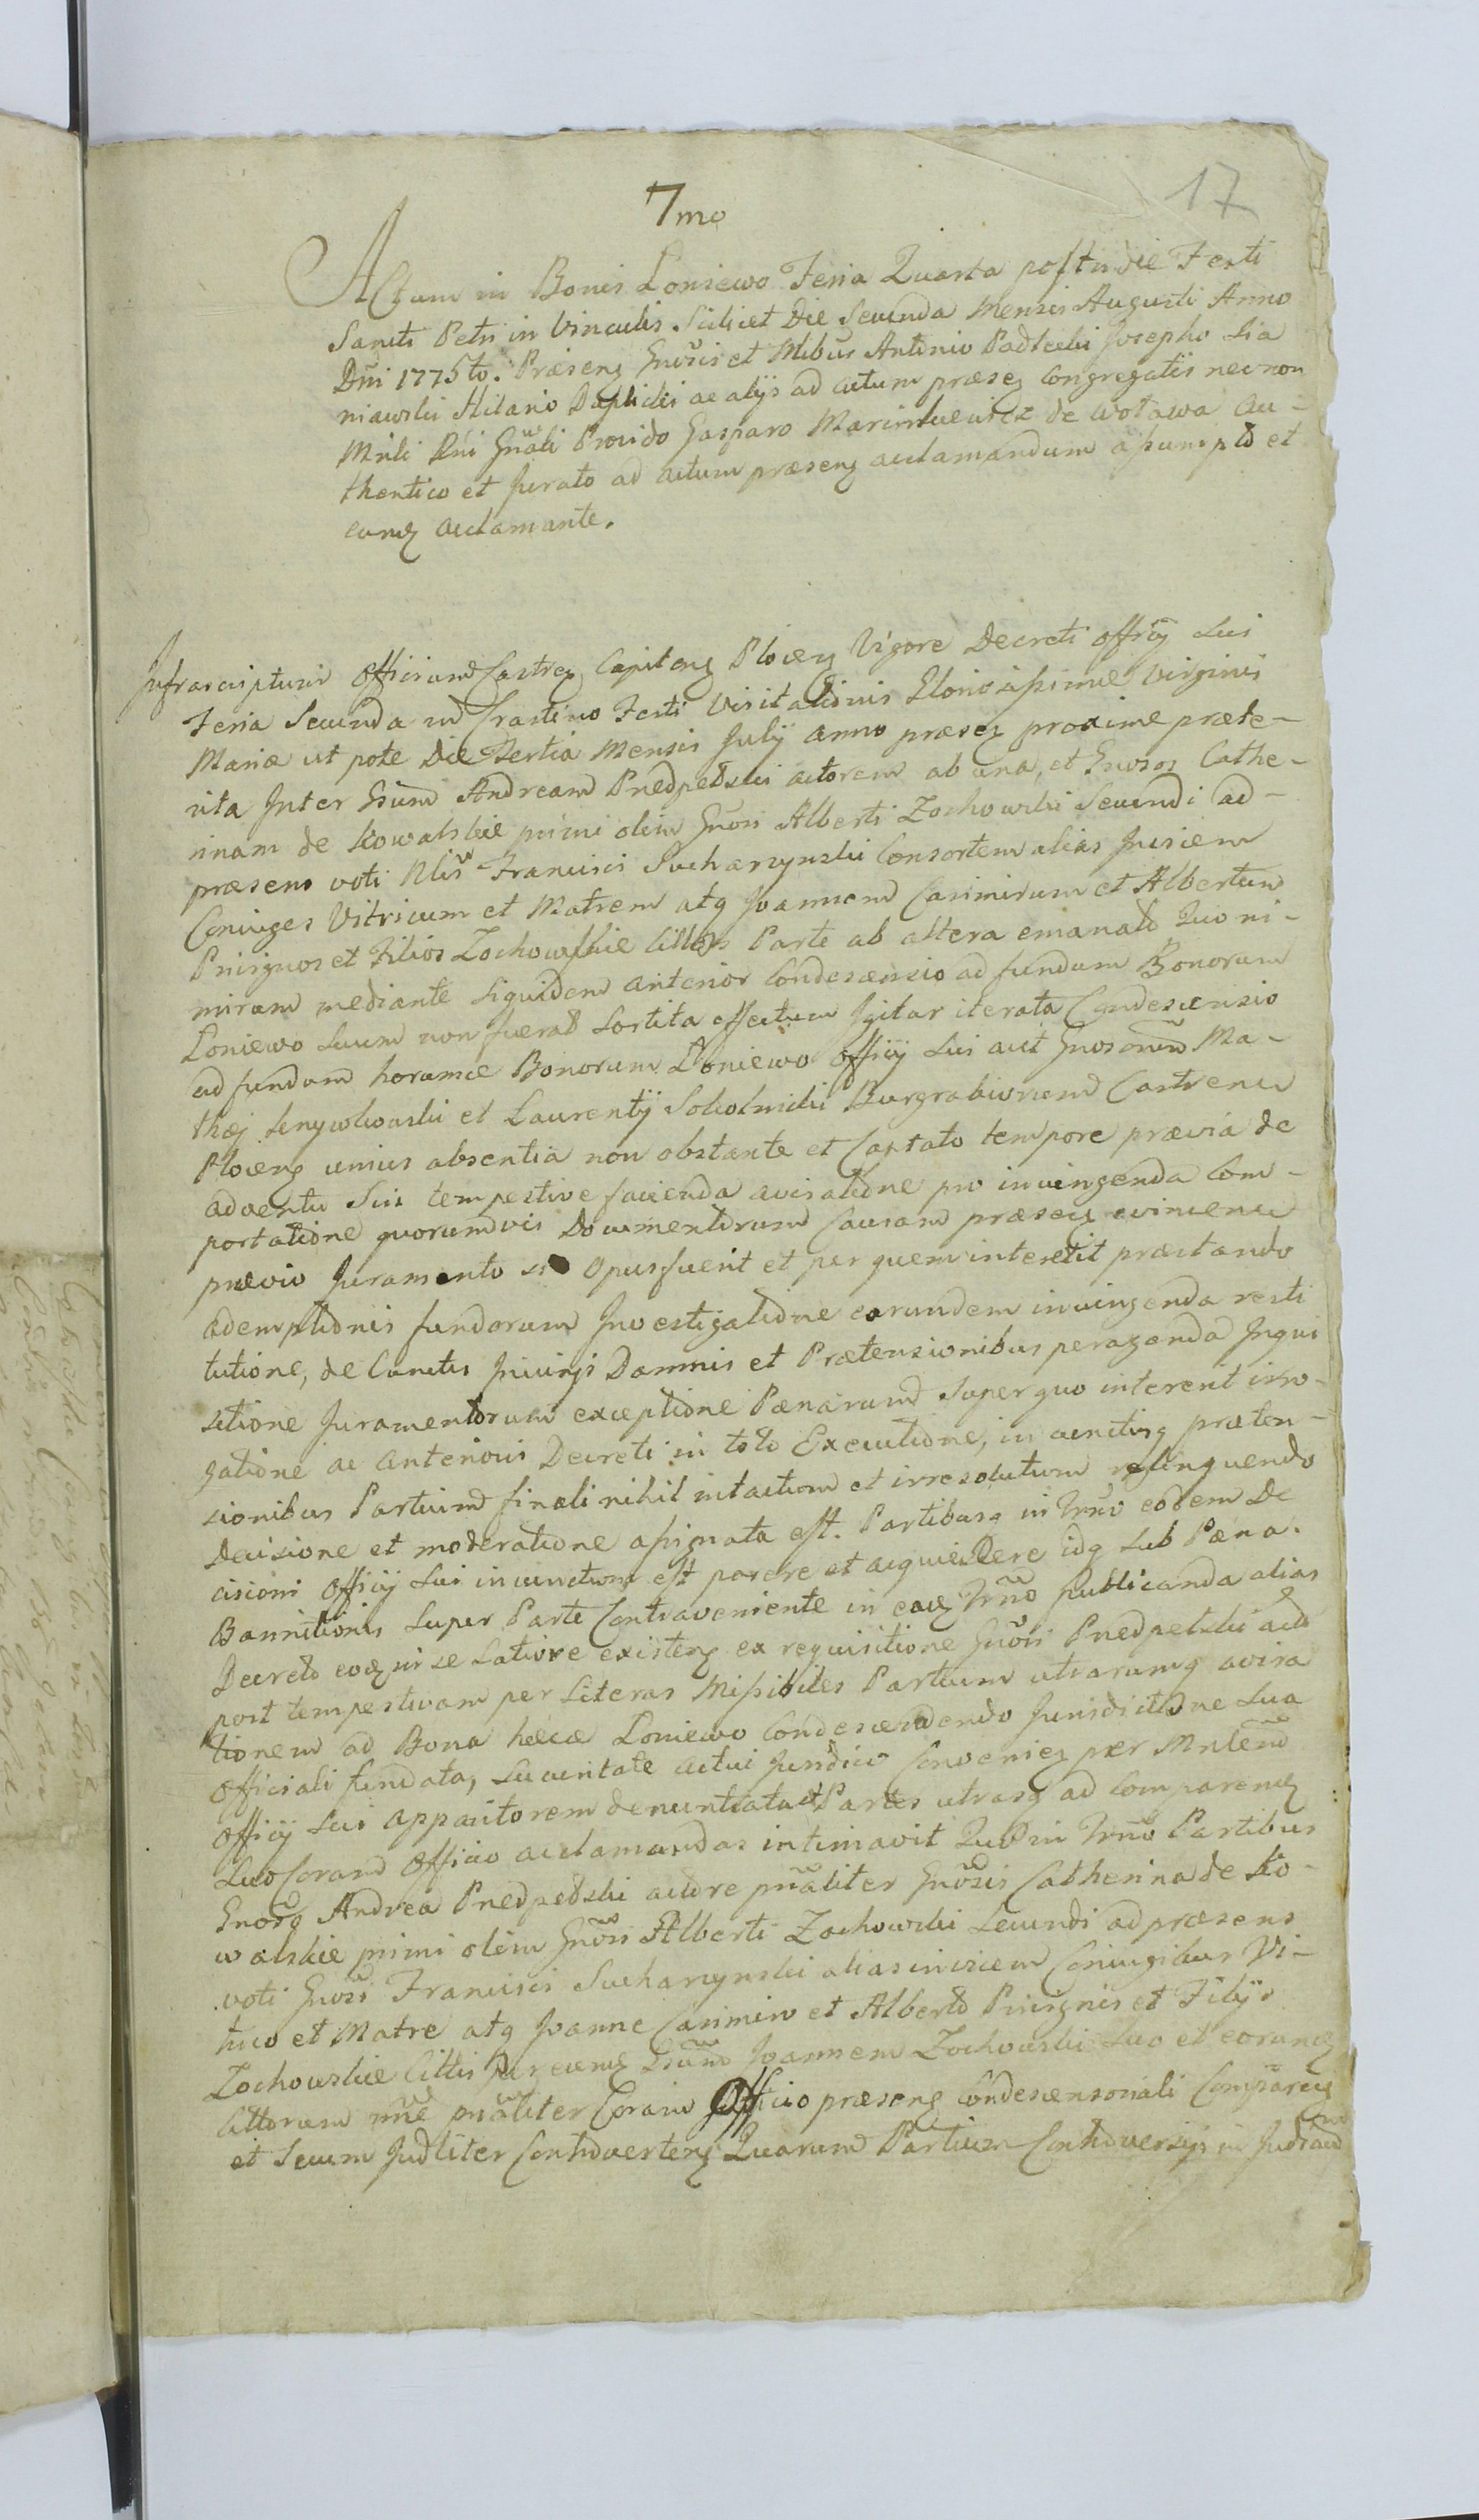 17
7mo
Actum in Bonis Łoniewo Feria Quarta postridie Festi
Sancti Petri in Vinculis Scilicet Die Secunda Mensis Augusti Anno
Dñi 1775to. Præsenz Gnōsis et Nlibūs Antonio Josepho
Hilario ac alijs ad actum præsez congregatis necnon
Mrili Rni Gnāli Provido Gasparo de Au-
thentico et Jurato ad actum præsenz acclamandum assumpto et
eunz acclamante.
Infrascripturus Officium Castrez Capitanz Plocenz Vigore Decreti Officij Sui
Feria Secunda in Crastino Festi Visitationis Gloriosissimæ Virginis
Mariæ ut pote Die Tertia Mensis Julij Anno præsez proxime præte-
rita Inter Gsum Andream Pnedpełski actorem ab una, et Gnosos Cathe-
rinam de Kowalskie primi olim Gnōsi Alberti Zochowski Secundi ad-
præsens voti Nlis Francisci Sucharzynski Consortem alias Invicem
Coniuges Vitricum et Matrem atq Joannem Casimirum et Albertum
Privignos et Filios Zochowskie Cittos Parte ab altera emanato Quo ni-
mirum mediante siquidem anterior Condescensio ad fundum Bonorum
Łoniewo Suum non fuerat Sortita effectum Igitur iterata Condescensio
ad fundum horumce Bonorum Łoniewo Officij Sui aut Gnosorum Ma-
thej et Laurentij Burgrabiorum Castrenū
Plocenz unius absentia non obstante et Captato tempore prævia de
adventu Sui tempestive facienda avisatione pro iniungenda Com-
portatione quorumvis Documentorum Causam præsez evincenū
prævio Juramento si Opus fuerit et per quem intererit præstando
ademptionis fundorum Investigatione eorundem iniungenda resti
tutione, de Cunctis Iniurijs Damnis et Prætensionibus peragenda Inqui
sitione Juramentorum exceptione Pænarum Super quo intererit irro-
gatione ac Anterioris Decreti in toto Executione, in cunctisq præten-
sionibus Partium finali nihil intactum et irresolutum relinquendo
Decisione et moderatione assignata est. Partibusq in Trno eodem De
cisioni Officij Sui iniunctum est parere et acquiescere idq Sub Pæna.
Bannitionis Super Parte Contraveniente in eoz Trno Publicanda alias
Decreto eoz in se Latiore existenz ex requisitione Gnōsi Pnedpelski acto
post tempestivam per Literas Missibiles Partium utrarumq avisa
tionem ad Bona hæcce Łoniewo Condescendendo Jurisdictione Sua
Officiali fundata, Securitate actui Juridico Conveniez per Mntem
Officij Sui Apparitorem denuntiata Partes utrasq ad Comparenz
Suo Coram Officio acclamandas intimavit Quo in Trno Partibus
Gnosq Andrea Pnedpełski actore pnāliter Gnōsis Catherina de Ko-
walskie primi olim Gnōsi Alberti Zochowski Secundi ad præsens
voti Gnosi Francisci Sucharzynski alias invicem Coniugibus Vi-
trico et Matre atq Joanne Casimiro et Alberto Privignis et Filijs
Zochowskie Cittis per eunz Gsum Joannem Zochowski Suo et eorunz
Cittorum nñe pnāliter Coram Officio præsenz Condescensoriali Comparez
et Secum Judliter Controvertenz Quarum Partium Controversijs in